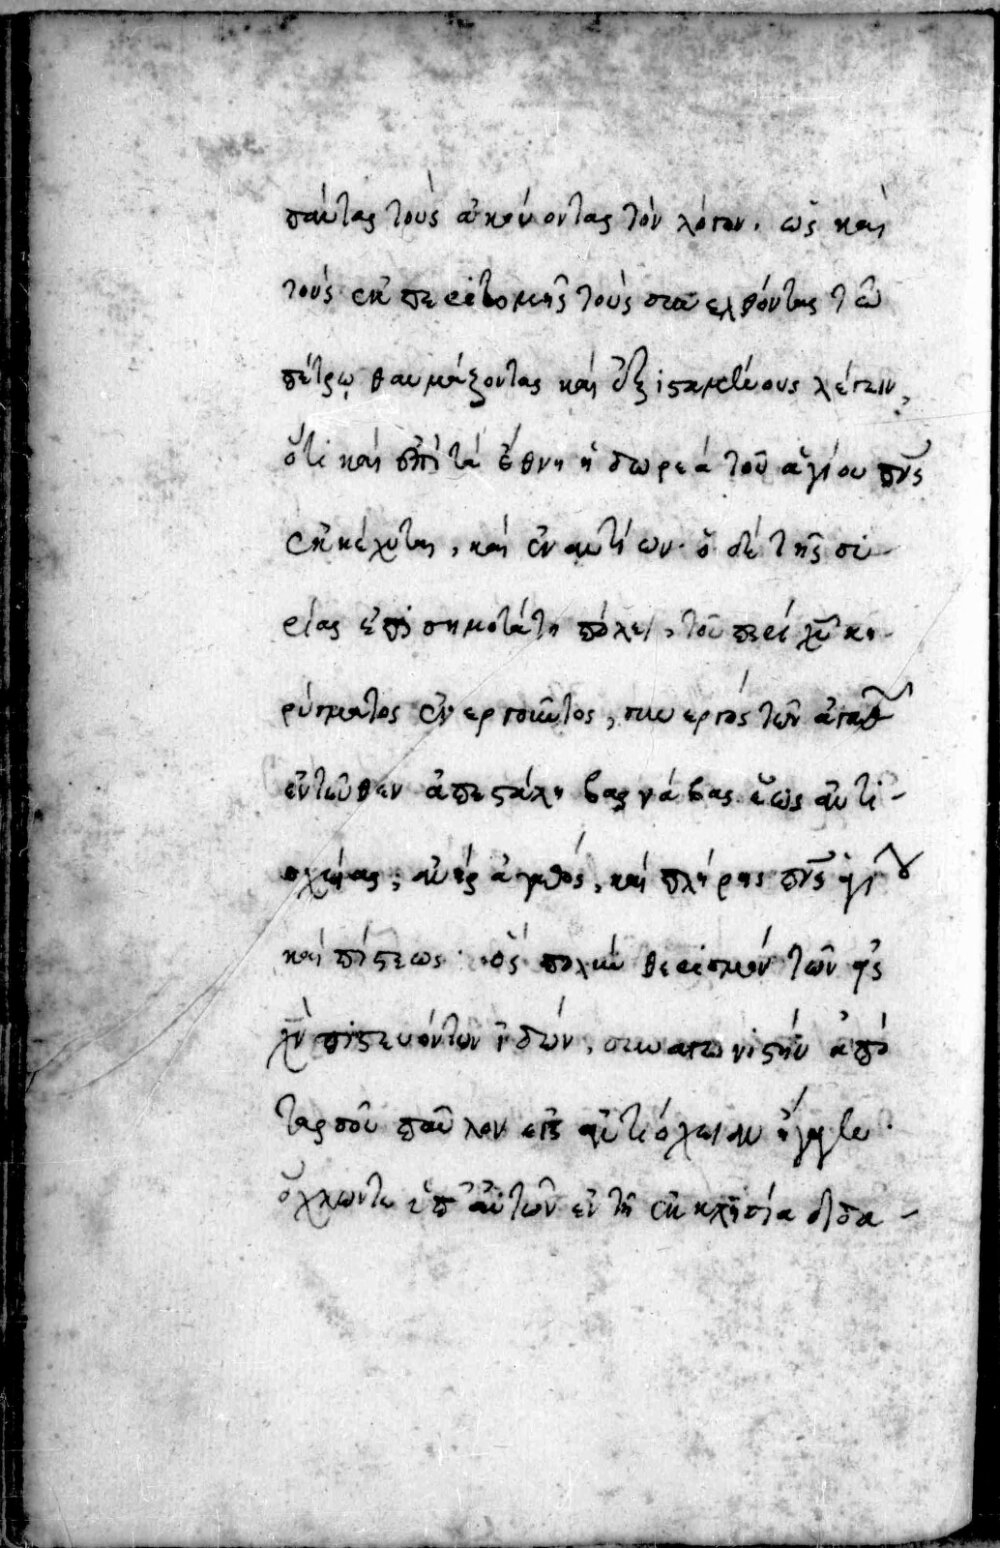 πάντας τοὺς ἀκούοντας τὸν λόγον. ὡς καὶ
τοὺς ἐκ περιτομῆς τοὺς συνελθόντας τῶ
πέτρω θαυμάζοντας καὶ ἐξισταμένους λέγειν,
ὅτι καὶ ἐπὶ τὰ ἔθνη ἡ δωρεὰ τοῦ ἁγίου πνς
ἐκκέχυται, καὶ ἐν αὐτίων. ὁ δὲ τῆς συ-
ρίας ἐπισημοτάτη πόλει, τοῦ περὶ χυ κη-
ρύγματος ἐνεργοῦντος, συνεργὸς τῶν ἀγαθ
ἐντεῦθεν ἀπεστάλη βαρνάβας ἕως ἀντι-
οχείας, ἀνὴρ ἀγαθός, καὶ πλήρης πνς ἁγίου
καὶ πίστεως. ὃς πολὺν θερισμὸν τῶν εἰς
χν πιστευόντων ἰδών, συναγωνιστὴν ἀπὸ
ταρσοῦ παῦλον εἰς ἀντιόχειαν ἤγαγεν.
ὄχλων τε ὑπ' αὐτῶν ἐν τῆ ἐκκλησία διδα-